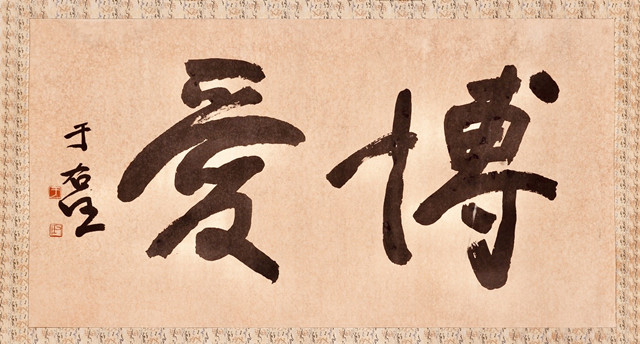 博愛
于右任